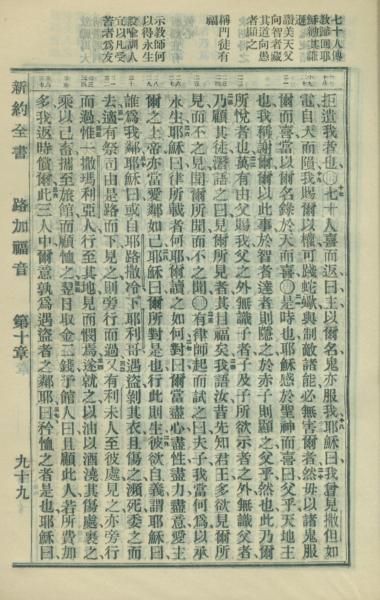 七十人傳
教歸回耶
穌
讚美天父
向智者藏
其道向愚
者顯之
稱門徒有
福
示教師何
以得永生
設喻訓人
宜以凡受
苦者爲友
拒遣我者也〇七十人喜而返曰主以爾名鬼亦服我耶穌曰我曾見撒但如
電自天而隕我賜爾以權可踐蛇蠍與制敵諸能必無害爾者然毋以諸鬼服
爾而喜當以爾名錄於天而喜〇是時也耶穌感於聖神而喜曰父乎天地主
也我稱謝爾爾以此事於智者達者則隱之於赤子則顯之父乎然也此乃爾
所悅者也萬有由父賜我父之外無識子者子及子所欲示者之外無識父者
乃顧其徒潛語之曰見爾所見者其目福矣我語汝昔先知君王多欲見爾所
見而不之見聞爾所聞而不之聞〇有律師起而試之曰夫子我當何爲以承
永生耶穌曰律所載者何耶爾讀之如何對曰爾當盡心盡性盡力盡意愛主
爾之上帝亦當愛鄰如己耶穌曰爾所對是也行此則生彼欲自義謂耶穌曰
誰爲我鄰耶穌曰或自耶路撒冷下耶利哥遇盜剝其衣且傷之瀕死委之而
去適有祭司由是路而下見之則旁行而過又有利未人至彼處見之亦旁行
而過惟一撒瑪利亞人行至其地見而憫焉遂就之以油以酒澆其傷處裹之
乘以己畜攜至旅館而顧恤之翌日取金二錢予館人曰且顧此人若所費加
多我返時償爾此三人中爾意孰爲遇盜者之鄰耶曰矜恤之者是也耶穌曰
新約全書 路加福音 第十章 九十九